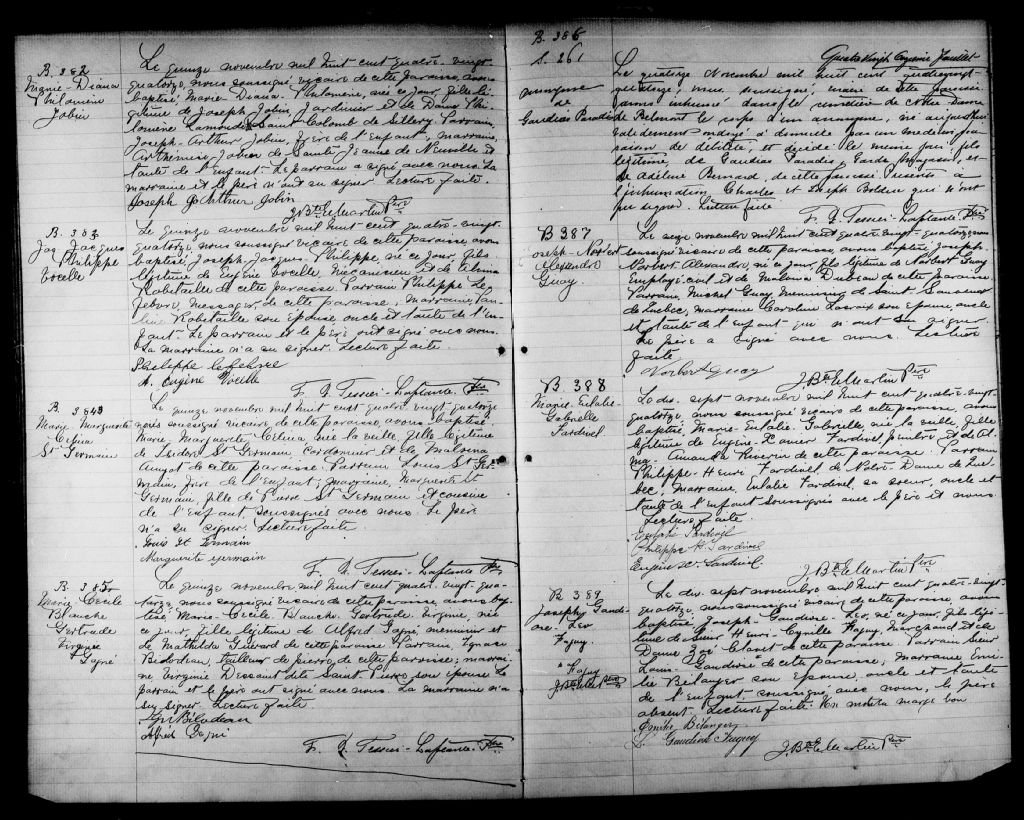 B. 382
Marie-Diana
Philomène
Jobin
Le quinze novembre mil huit cent quatre-vingt
quatorze, nous soussigné vicaire de cette paroisse, avons
baptisé, Marie Diana Philomène, née ce jour, fille lé-
gitime de Joseph Jobin, Jardinier et de Dame Phi-
lomène Lamonde de Saint-Colomb de Sillery. Parrain,
Joseph-Arthur Jobin, frère de l'Enfant, marraine,
Arthémise Jobin de Sainte Jeanne de Neuville et
tante de l'Enfant. Le parrain a signé avec nous. La
marraine et le père n'ont su signer. Lecture faite.
Joseph Arthur Jobin
J. Bte LeMartin Ptre
B. 383
Jos Jacques
Philippe
Vocelle
Le quinze novembre mil huit cent quatre-vingt-
quatorze nous soussigné vicaire de cette paroisse avons
baptisé, Joseph, Jacques-Philippe, né ce jour, fils
légitime de Eugène Vocelle, mécanicien et de
Robitaille de cette paroisse. Parrain Philippe Le
febvre, messager de cette paroisse, marraine,
Robitaille son épouse, oncle et tante de l'en-
fant. Le parrain et le père ont signé avec nous.
La marraine n'a su signer. Lecture faite.
Philippe Lefebvre
Eugène Vocelle
F. X. Tessier-Laplante Ptre
B. 384
Marie Marguerite
Célina
St Germain
Le quinze novembre mil huit cent quatre vingt quatorze
nous soussigné vicaire de cette paroisse, avons baptisé
Marie, Marguerite Célina, née la veille, fille légitime
de Isidore St Germain, Cordonnier et de Malvina
Amyot de cette paroisse. Parrain Louis St Ger-
main, frère de l'Enfant, marraine, Marguerite St
Germain, fille de Pierre St Germain et cousine
de l'Enfant soussignés avec nous. Le père
n'a su signer. Lecture faite.
Louis St Germain
Marguerite germain
F. X. Tessier-Laplante Ptre
B. 385
Marie Cécile
Blanche
Gertrude
Virginie
Gagné
Le quinze novembre mil huit cent quatre-vingt-qua-
torze, nous soussigné vicaire de cette paroisse, avons bap-
tisé, Marie-Cécile Blanche Gertrude Virginie, née
ce jour, fille légitime de Alfred Gagné, menuisier et
de Mathilda Giévard de cette paroisse. Parrain, Ignace
Bilodeau, tailleur de pierre de cette paroisse; marrai-
ne, Virginie Dessaint dite Saint Pierre son épouse. Le
parrain et le père ont signé avec nous. La marraine n'a
su signer. Lecture faite.
Bilodeau
Alfred Gagné
F. X. Tessier-Laplante Ptre
Quatre Vingt Onzième Feuillet
B. 386
S. 261
anonyme
de
Gaudias Paradis
Le quatorze Novembre mil huit cent quatrevingt-
quatorze, nous, soussigné, vicaire de cette paroisse
avons inhumé dans le cimetière de Notre-Dame
de Belmont le corps d'un anonyme, né aujourd'hui
validement ondoyé à domicile par un médecin pour
raison de débilité, et décédé le même jour, fils
légitime, de Gaudias Paradis, Garde Magasin, et
de Adeline Bernard, de cette paroisse. Présents à
l'inhumation, Charles et Joseph Bolduc qui n'ont
pu signer. Lecture faite
F. X. Tessier-Laplante Ptre
B 387
Joseph-Norbert
Alexandre
Guay
Le seize novembre mil huit cent quatre vingt-quatorze nous
soussigné vicaire de cette paroisse avons baptisé Joseph
Norbert Alexandre, né ce jour, fils légitime de Norbert Guay
Employé civil et de Malvina Dubeau de cette paroisse
Parrain, Michel Guay, menuisier de Saint Sauveur
de Québec, marraine Caroline Lacroix son épouse, oncle
et tante de l'Enfant qui n'ont su signer.
Le père a signé avec nous. Lecture
faite
Norbert Guay
J. Bte LeMartin Ptre
B 388
Marie-Eulalie-
Gabrielle
Fardivel
Le dix-sept novembre mil huit cent quatre-vingt-
quatorze, nous soussigné vicaire de cette paroisse, avons
baptisé, Marie-Eulalie Gabrielle, née la veille, fille
légitime de Eugène-Xavier Fardivel, peintre et de Al-
ma-Amanda Riverin de cette paroisse. Parrain
Philippe-Henri Fardivel de Notre-Dame de Qué-
bec, marraine, Eulalie Fardivel, sa soeur, oncle et
tante de l'Enfant soussignés avec le père et nous.
Lecture faite.
Eulalie Fardivel
Philippe H. Fardivel
Eugène X. Fardivel
J. Bte LeMartin Ptre
B 389
Joseph Gaudi-
ose-Léo
Huguay
Le dix-sept novembre mil huit cent quatre-vingt-
quatorze, nous soussigné vicaire de cette paroisse, avons
baptisé Joseph-Gaudiose-Léo, né ce jour, fils légi-
time de Sieur Henri-Cyrille Huguay, Marchand et de
Dame Zoé Clavet de cette paroisse. Parrain Sieur
Louis-Gaudiose * de cette paroisse; marraine Emi-
lie Bélanger son épouse, oncle et tante
de l'Enfant, soussignés avec nous, le père
absent. Lecture faite. Un mot en marge bon
* Huguay
J. Bte LeM Ptre
Emilie Bélanger
L. Gaudiose Huguay
J. Bte LeMartin Ptre